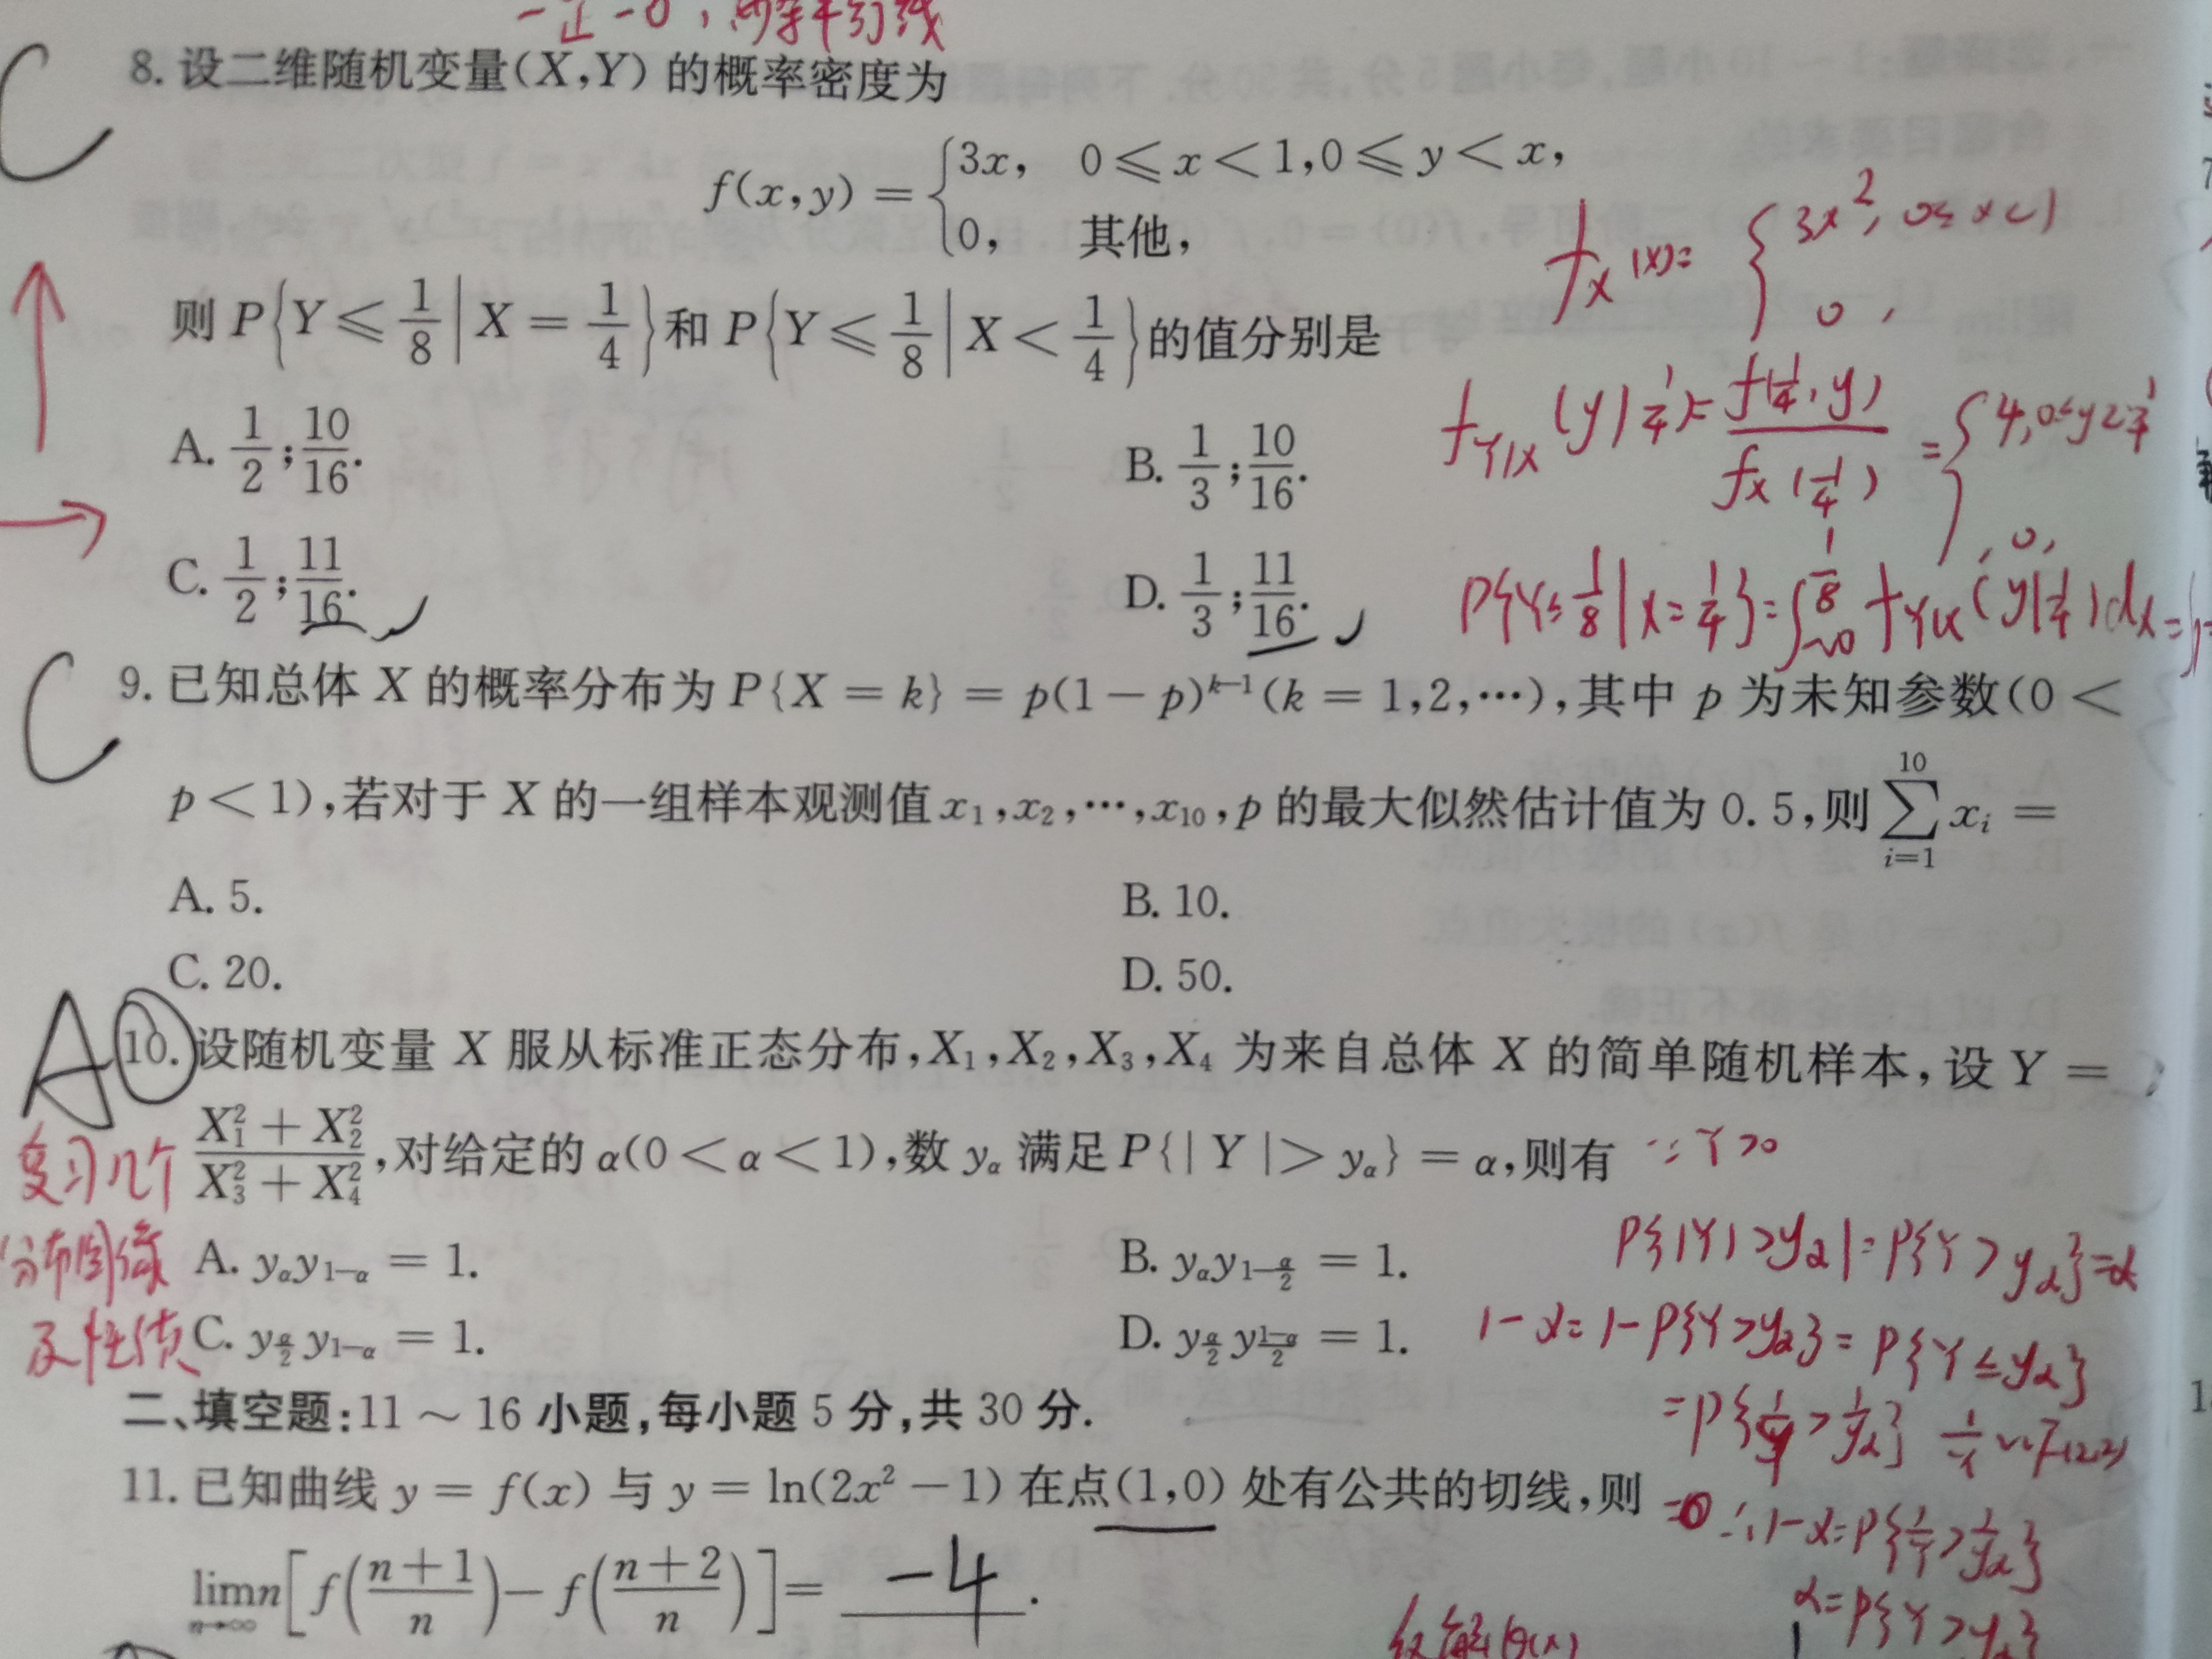 一正一0，
C
8. 设二维随机变量(X,Y) 的概率密度为
f(x,y) = {3x, 0⩽x<1,0⩽y<x,
0, 其他,
f_X(x)= {3x², 0≤x<1
0,
则 P{Y⩽1/8|X=1/4}和 P{Y⩽1/8|X<1/4}的值分别是
f_{Y|X}(y|1/4)= f(1/4,y)/f_X(1/4) = {4,0≤y≤1/4
,0,
A. 1/2;10/16.
B. 1/3;10/16.
C. 1/2;11/16.
D. 1/3;11/16.
P{Y≤1/8|X=1/4}=∫_{-∞}^{1/8} f_{Y|X}(y|1/4)dx=
C
9. 已知总体 X 的概率分布为 P{X = k} = p(1-p)^{k-1}(k = 1,2,…),其中 p 为未知参数(0<
p<1),若对于 X 的一组样本观测值 x₁,x₂,…,x₁₀,p 的最大似然估计值为 0.5,则 ∑_{i=1}^{10} x_i =
A. 5.
B. 10.
C. 20.
D. 50.
A
10. 设随机变量 X 服从标准正态分布,X₁,X₂,X₃,X₄ 为来自总体 X 的简单随机样本,设 Y =
(X₁²+X₂²)/(X₃²+X₄²),对给定的 α(0<α<1),数 y_α 满足 P{|Y|>y_α} = α,则有
∵Y>0
复习几个
分布图像
及性质
P{|Y|>y_α|=P{Y>y_α}=α
A. y_α y_{1-α} = 1.
B. y_α y_{1-α/2} = 1.
1-α=1-P{Y>y_α}=P{Y≤y_α}
C. y_{α/2} y_{1-α} = 1.
D. y_{α/2} y_{(1-α)/2} = 1.
=P{1/Y>1/y_α} 1/Y~F(2,2)
二、填空题:11～16 小题,每小题 5 分,共 30 分.
11. 已知曲线 y = f(x) 与 y = ln(2x²-1) 在点(1,0) 处有公共的切线,则
∴1-α=P{1/Y>1/y_α}
lim_{n→∞} n[f((n+1)/n)-f((n+2)/n)]= -4 .
α=P{Y>y_α}